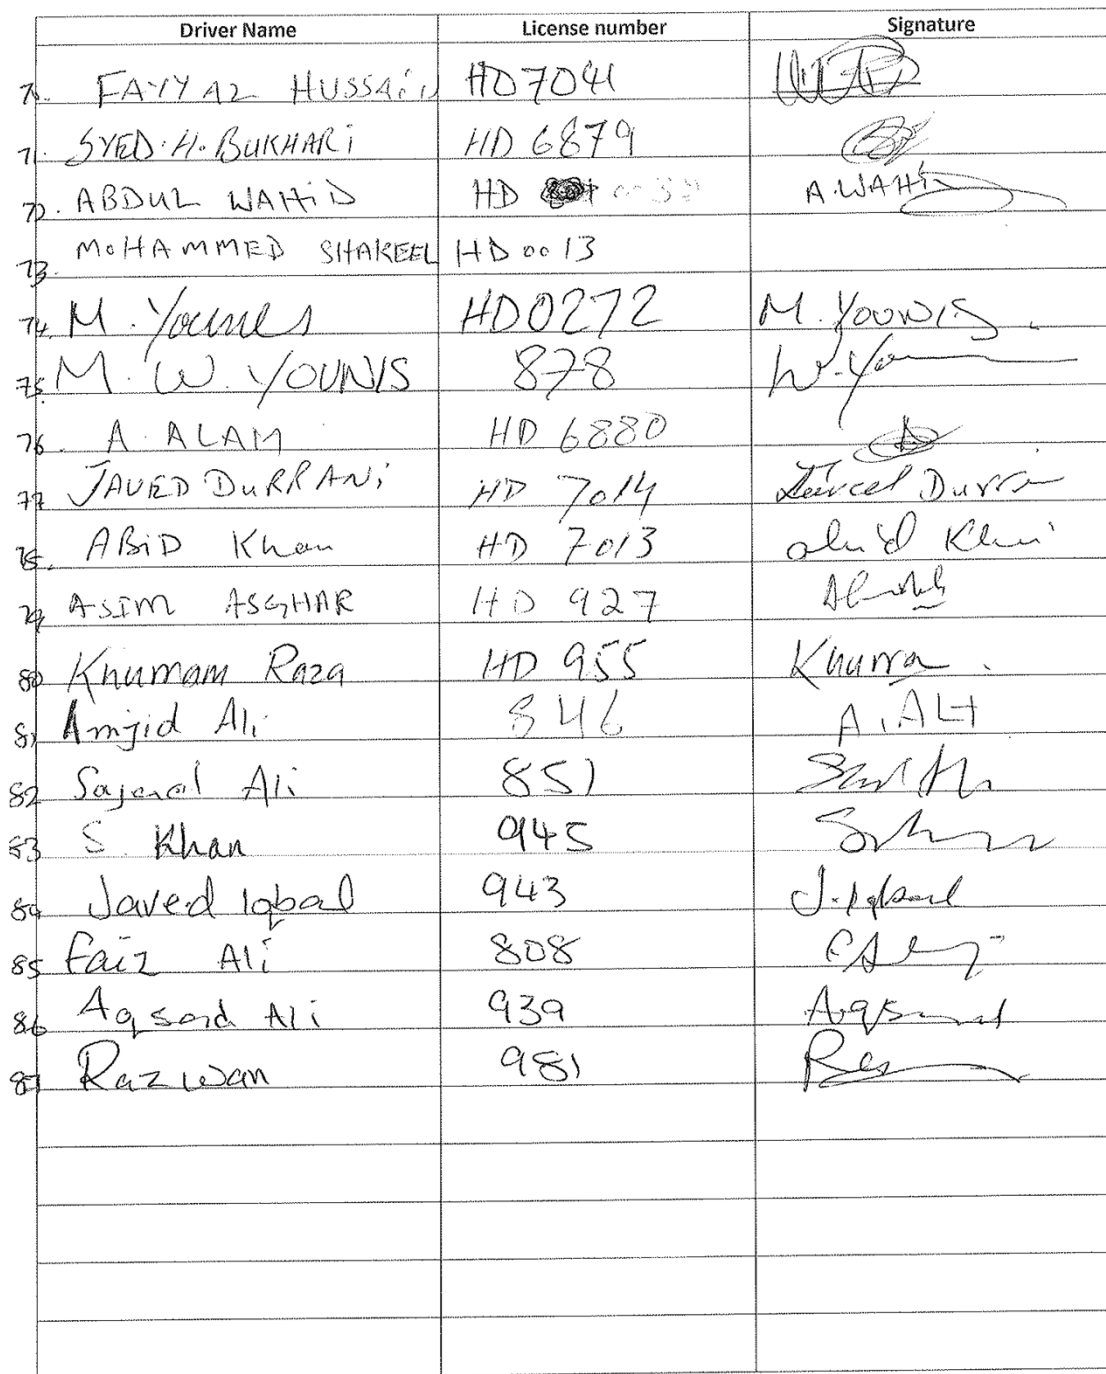 Driver Name License number Signature
70. FAYYAZ HUSSAIN HD7041
71. SYED.H.BUKHARI HD 6879
72. ABDUL WAHID HD A.WAHID
73. MOHAMMED SHAKEEL HD 0013
74. M. Younes HD0272 M. YOUNIS.
75. M. W. YOUNIS 878 W. You
76. A. ALAM HD 6880
77 JAVED DURRANI HD 7014 Durra
78. ABID Khan HD 7013 abid Khan
79 ASIM ASGHAR HD 927
80 Khurram Raza HD 955 Khurra
81 Amjid Ali 846 A.ALI
82 Sajjad Ali 851
83 S. Khan 945
84 Javed Iqbal 943 J.Iqbal
85 Faiz Ali 808
86 Aqsad Ali 939
87 Razwan 981